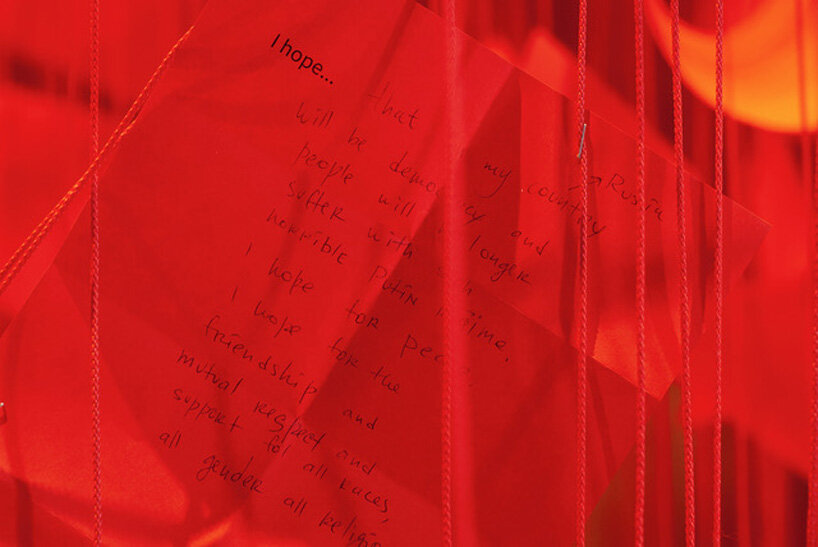 I hope...
that my country Russia
will be democracy and
people will longer
suffer with such
horrible Putin regime.
I hope for peace.
I hope for the
friendship and
mutual respect and
support for all races,
all gender all religio